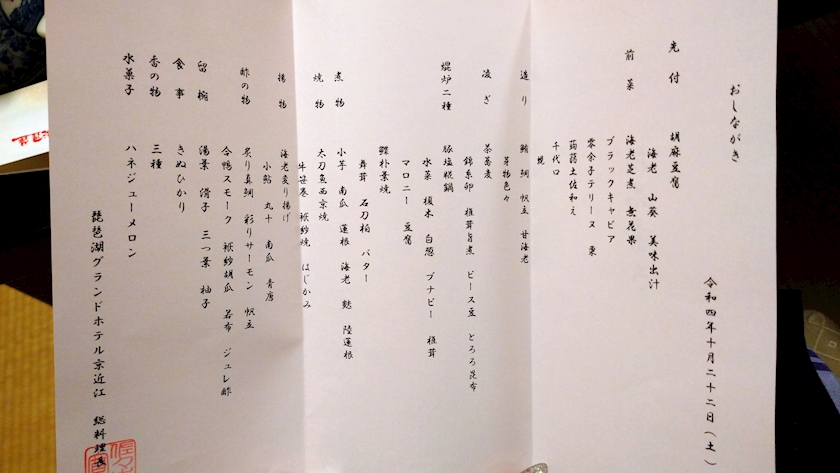 おしながき
令和四年十月二十二日(土)
先付 胡麻豆腐
海老 山葵 美味出汁
前菜 海老芝煮 無花果
ブラックキャビア
零余子テリーヌ 栗
蒟蒻土佐和え
千代口
造り 鮪 鯛 帆立 甘海老
芽物色々
凌ぎ 茶蕎麦
錦糸卵 椎茸旨煮 ピース豆 とろろ昆布
焜炉二種 豚塩糀鍋
水菜 榎木 白葱 ブナピー 椎茸
マロニー 豆腐
鰹朴葉焼
舞茸 石刀柏 バター
煮物 小芋 南瓜 蓮根 海老 麩 陸蓮根
焼物 太刀魚西京焼
牛笹巻 袱紗焼 はじかみ
揚物 海老変り揚げ
小鮎 丸十 南瓜 青唐
酢の物 炙り真鯛 彩りサーモン 帆立
合鴨スモーク 袱紗胡瓜 若布 ジュレ酢
留椀 湯葉 滑子 三つ葉 柚子
食事 きぬひかり
香の物 三種
水菓子 ハネジューメロン
琵琶湖グランドホテル京近江 総料理長